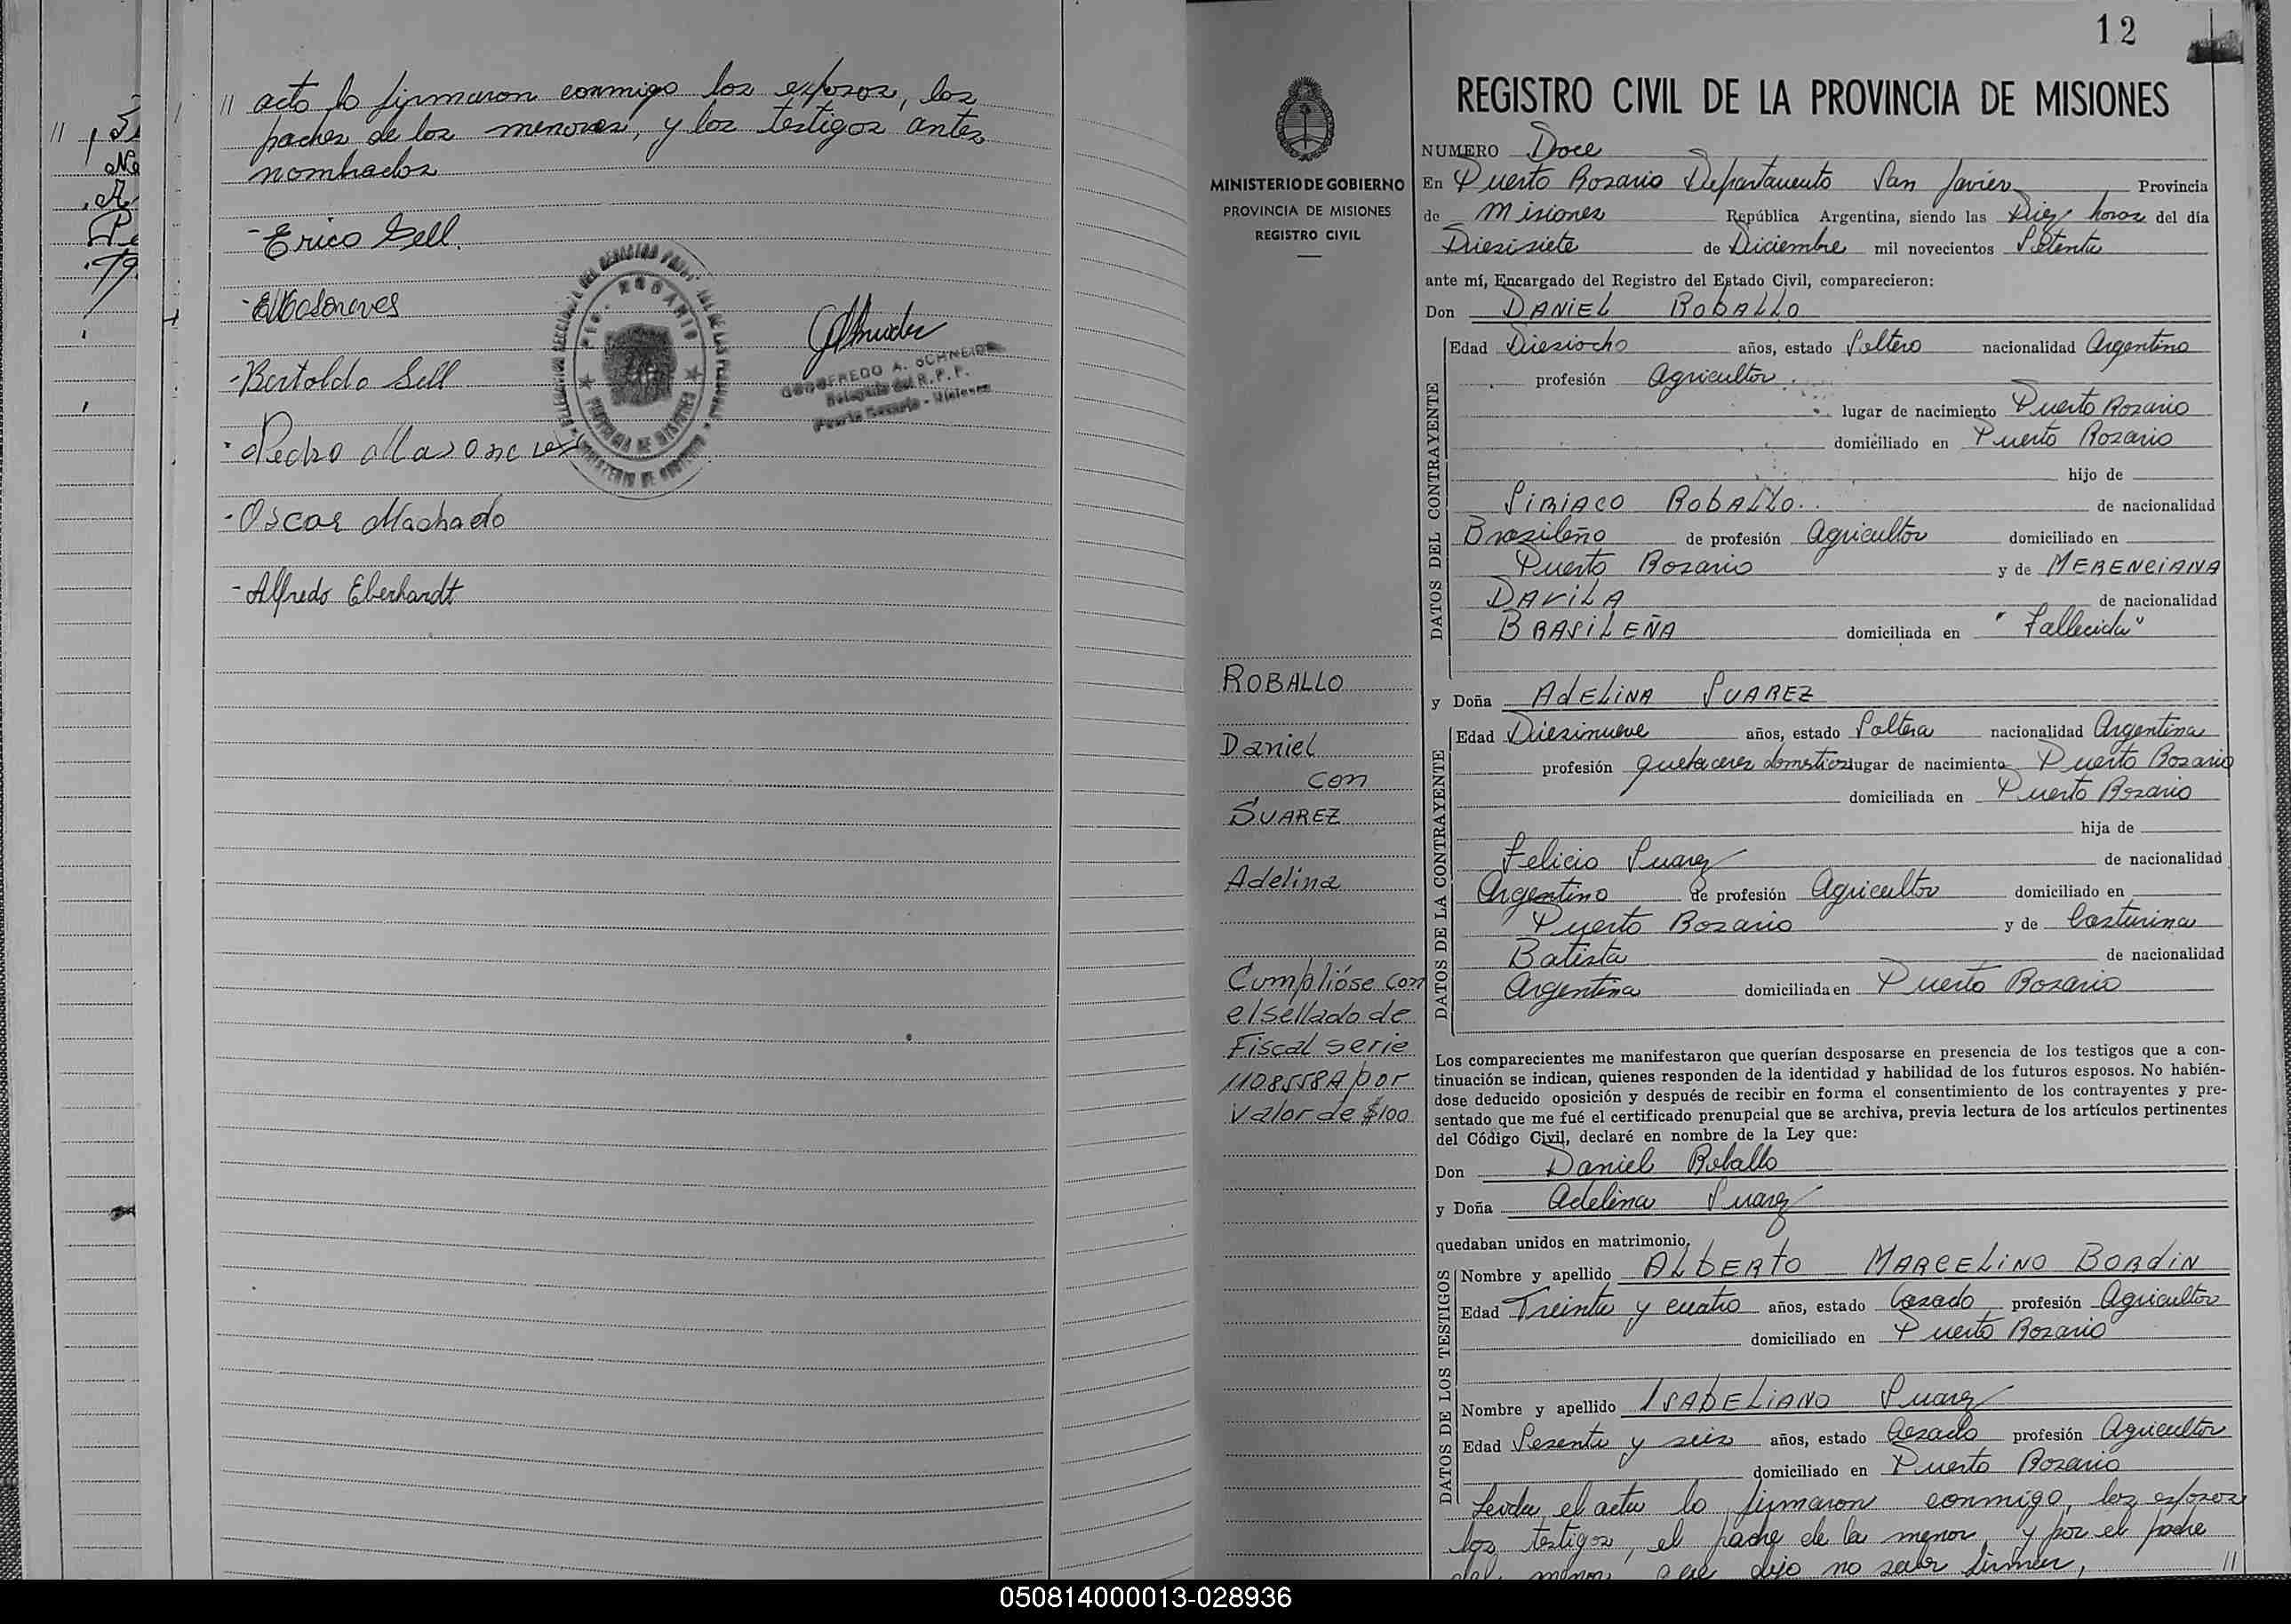 // acto lo firmaron conmigo los esposos, los
padres de los menores, y los testigos antes
nombrados
- Erico Sell.
- Bertoldo Sell
- Pedro Masoneves
- Oscar Machado
- Alfredo Eberhardt
PROVINCIA DE MISIONES
GODOFREDO A. SCHNEIDER
Delegado del R. P. P.
Puerto Rosario - Misiones
12
REGISTRO CIVIL DE LA PROVINCIA DE MISIONES
MINISTERIO DE GOBIERNO
PROVINCIA DE MISIONES
REGISTRO CIVIL
ROBALLO
Daniel
con
SUAREZ
Adelina
Cumplióse con
el sellado de
Fiscal serie
1108558A por
valor de $100
NUMERO Doce
En Puerto Rosario Departamento San Javier Provincia
de Misiones República Argentina, siendo las Diez horas del día
Diesisiete de Diciembre mil novecientos Setenta
ante mí, Encargado del Registro del Estado Civil, comparecieron:
Don DANIEL ROBALLO
DATOS DEL CONTRAYENTE
Edad Diesiocho años, estado Soltero nacionalidad Argentino
profesión Agricultor
lugar de nacimiento Puerto Rosario
domiciliado en Puerto Rosario
hijo de
SIRIACO ROBALLO.
de nacionalidad
Brasileño de profesión Agricultor domiciliado en
Puerto Rosario y de MERENCIANA
DAVILA de nacionalidad
BRASILEÑA domiciliada en "Fallecida"
y Doña ADELINA SUAREZ
DATOS DE LA CONTRAYENTE
Edad Diesinueve años, estado Soltera nacionalidad Argentina
profesión quehaceres domesticos lugar de nacimiento Puerto Rosario
domiciliada en Puerto Rosario
hija de
Felicio Suarez de nacionalidad
Argentino de profesión Agricultor domiciliado en
Puerto Rosario y de Casturina
Batista de nacionalidad
Argentina domiciliada en Puerto Rosario
Los comparecientes me manifestaron que querían desposarse en presencia de los testigos que a con-
tinuación se indican, quienes responden de la identidad y habilidad de los futuros esposos. No habién-
dose deducido oposición y después de recibir en forma el consentimiento de los contrayentes y pre-
sentado que me fué el certificado prenupcial que se archiva, previa lectura de los artículos pertinentes
del Código Civil, declaré en nombre de la Ley que:
Don Daniel Roballo
y Doña Adelina Suarez
quedaban unidos en matrimonio.
DATOS DE LOS TESTIGOS
Nombre y apellido ALBERTO MARCELINO BORDIN
Edad Treinta y cuatro años, estado Casado profesión Agricultor
domiciliado en Puerto Rosario
Nombre y apellido ISABELIANO Suarez
Edad Sesenta y seis años, estado Casado profesión Agricultor
domiciliado en Puerto Rosario
Leida el acta lo firmaron conmigo, los esposos
los testigos, el padre de la menor y por el padre
del menor que dijo no saber firmar, //
050814000013-028936